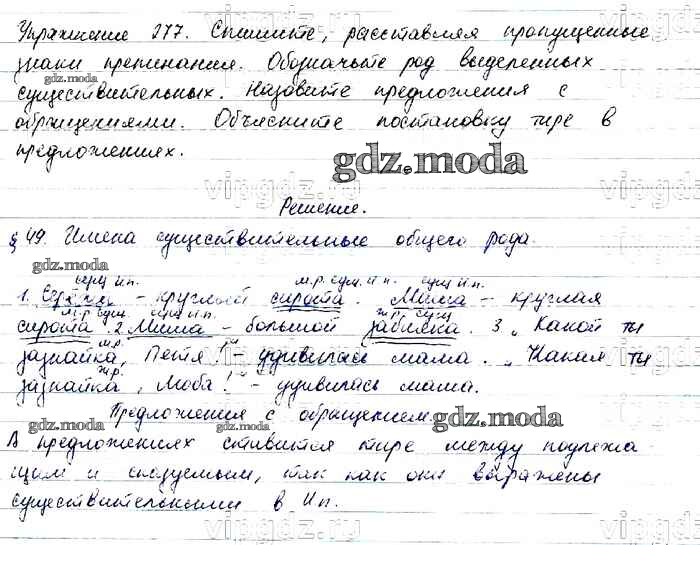 Упражнение 277. Спишите, расставляя пропущенные
знаки препинания. Обозначьте род выделенных
существительных. Назовите предложения с
обращениями. Объясните постановку тире в
предложениях.
Решение.
§ 49. Имена существительные общего рода.
сущ И п. м.р. сущ. И п. сущ И п.
1. – круглый сирота. Миша – круглая
м.р. сущ. сущ И п. ж.р. сущ
сирота. 2. Миша – большой забияка. 3. „Какой ты
м.р.
зазнайка, Петя!" – удивилась мама. „Какая ты
ж.р.
зазнайка, Люба!" – удивилась мама.
Предложения с обращением.
В предложениях ставится тире между подлежа-
щим и сказуемым, так как они выражены
существительными в И п.
gdz.moda
gdz.moda
gdz.moda
gdz.moda
gdz.moda
gdz.moda
vipgdz.ru